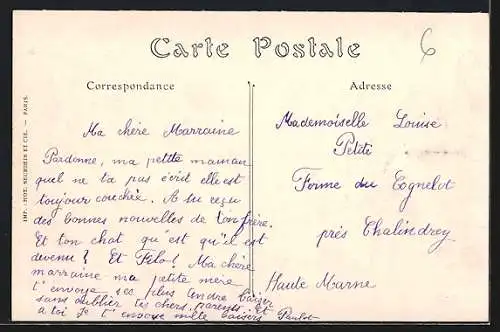 Carte Postale
6
Correspondance
Adresse
Ma chère Marraine
Pardonne, ma petite maman
quel ne ta pas écrit elle est
toujour couchée. A tu reçu
des bonnes nouvelles de ton frère.
Et ton chat qu'est qu'il est
devenu? Et Félo! Ma chère
marraine ma petite mère
t'envoye ses plus tendre baiser
sans oublier tes chers parents. Et
a toi je t'envoye mille baisers Paulot
Mademoiselle Louise
Petit
Ferme du Cognelot
près Chalindrey
Haute Marne
IMP. NEURDEIN ET CIE. — PARIS.